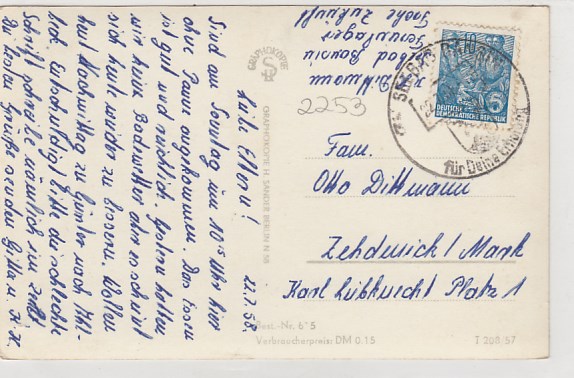 22.7.58.
Liebe Eltern!
Sind am Sonntag um 10¹⁵ Uhr hier
ohne Panne angekommen. Das Essen
ist gut und reichlich. Gestern hatten
wir kein Badewetter aber es scheint
sich heute wieder zu bessern. Wollen
heut Nachmittag zu Günter nach
bitte die schlechte
Schrift, schreibe nämlich im Zelt.
Die besten Grüße senden Gitta u. K. H.
Z. Dittmann
Seebad Bansin
Ferienlager
Frohe Zukunft
GRAPHOKOPIE
GRAPHOKOPIE H. SANDER BERLIN N 58
2253
DEUTSCHE
DEMOKRATISCHE REPUBLIK
5
für Deine
Fam.
Otto Dittmann
Zehdenick / Mark
Karl Liebknecht Platz 1
Best.-Nr. 6*5
Verbraucherpreis: DM 0.15
T 208/57